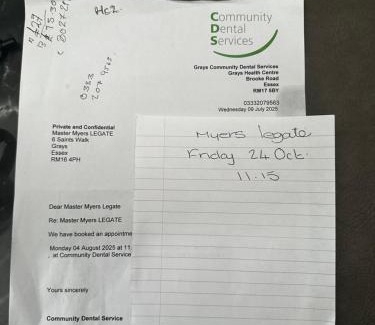 HC2
Community
Dental
Services
Grays Community Dental Services
Grays Health Centre
Brooke Road
Essex
RM17 5BY
03332079563
Wednesday 09 July 2025
Private and Confidential
Master Myers LEGATE
6 Saints Walk
Grays
Essex
RM16 4PH
Myers legate
Friday 24 Oct.
11.15
Dear Master Myers Legate
Re: Master Myers LEGATE
We have booked an appointme
Monday 04 August 2025 at 11
at Community Dental Service
Yours sincerely
Community Dental Service